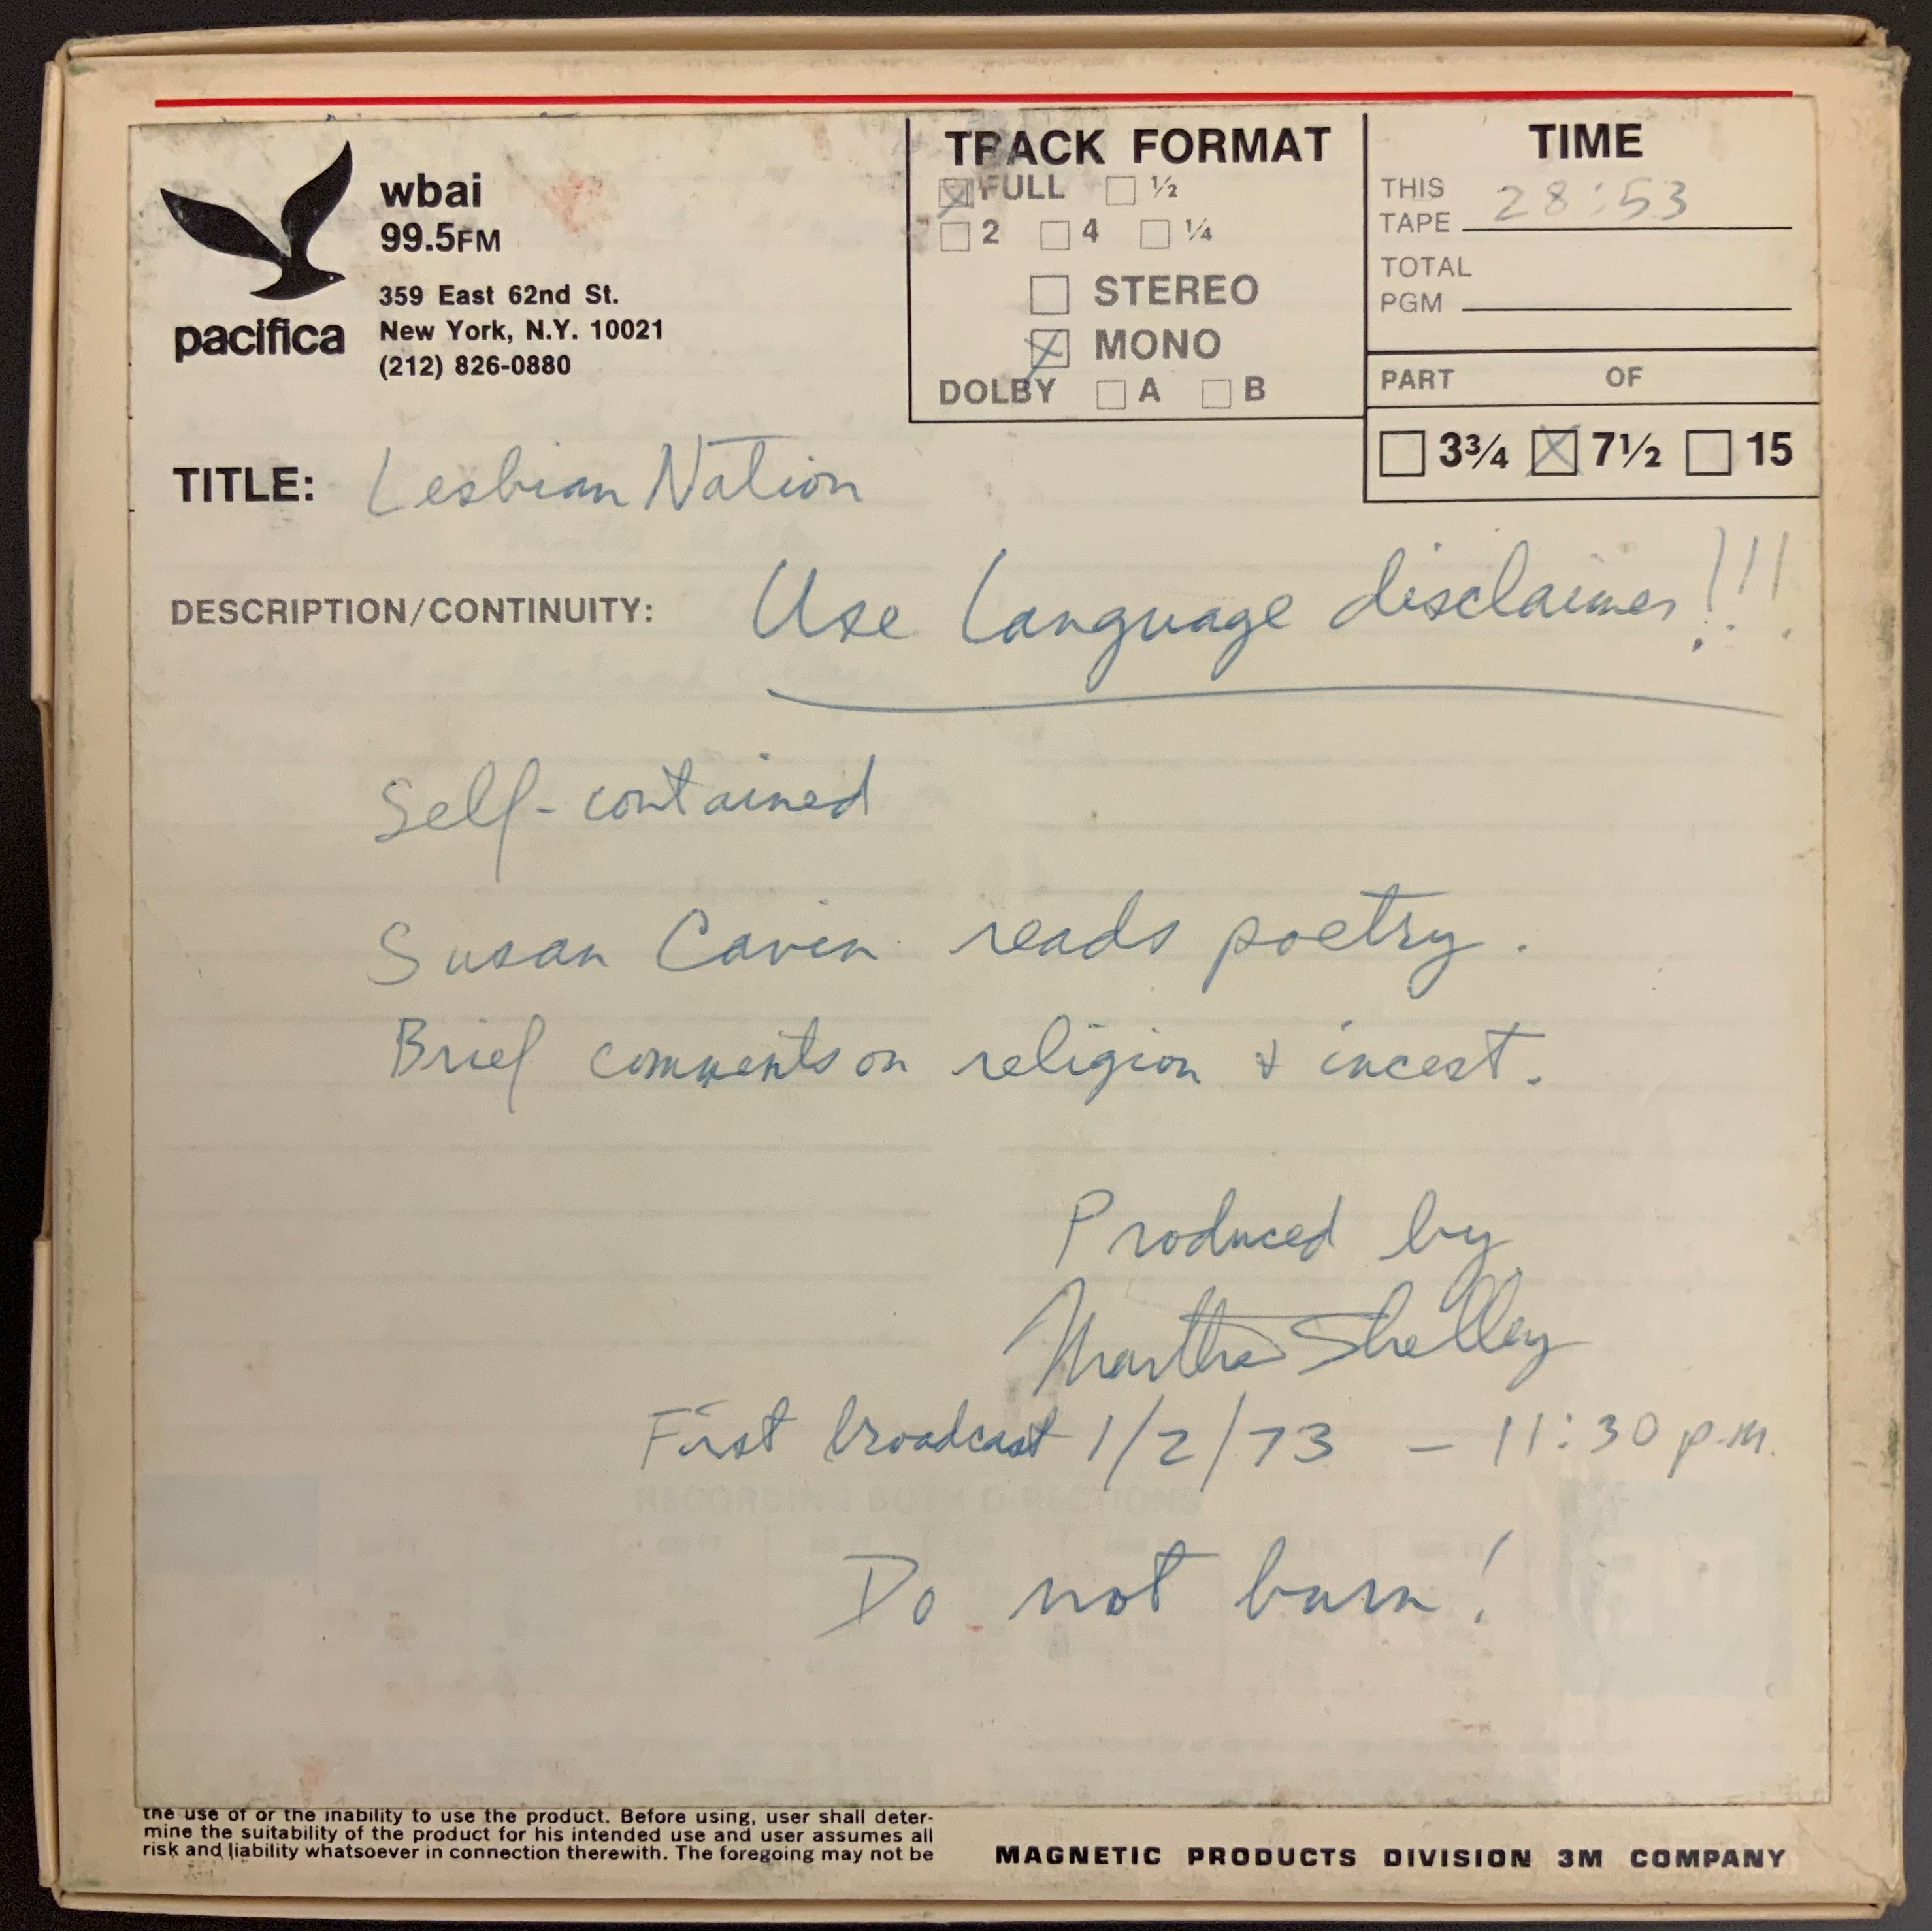 wbai
99.5FM
359 East 62nd St.
New York, N.Y. 10021
(212) 826-0880
pacifica
TRACK FORMAT
FULL 1/2
2 4 1/4
STEREO
MONO
DOLBY A B
TIME
THIS
TAPE 28:53
TOTAL
PGM
PART OF
3 3/4 7 1/2 15
TITLE: Lesbian Nation
DESCRIPTION/CONTINUITY: Use Language disclaimer!!!
Self-contained
Susan Cavin reads poetry.
Brief comments on religion & incest.
Produced by
Martha Shelley
First broadcast 1/2/73 - 11:30 p.m.
RECORDING BOTH DIRECTIONS
Do not burn!
the use of or the inability to use the product. Before using, user shall deter-
mine the suitability of the product for his intended use and user assumes all
risk and liability whatsoever in connection therewith. The foregoing may not be
MAGNETIC PRODUCTS DIVISION 3M COMPANY